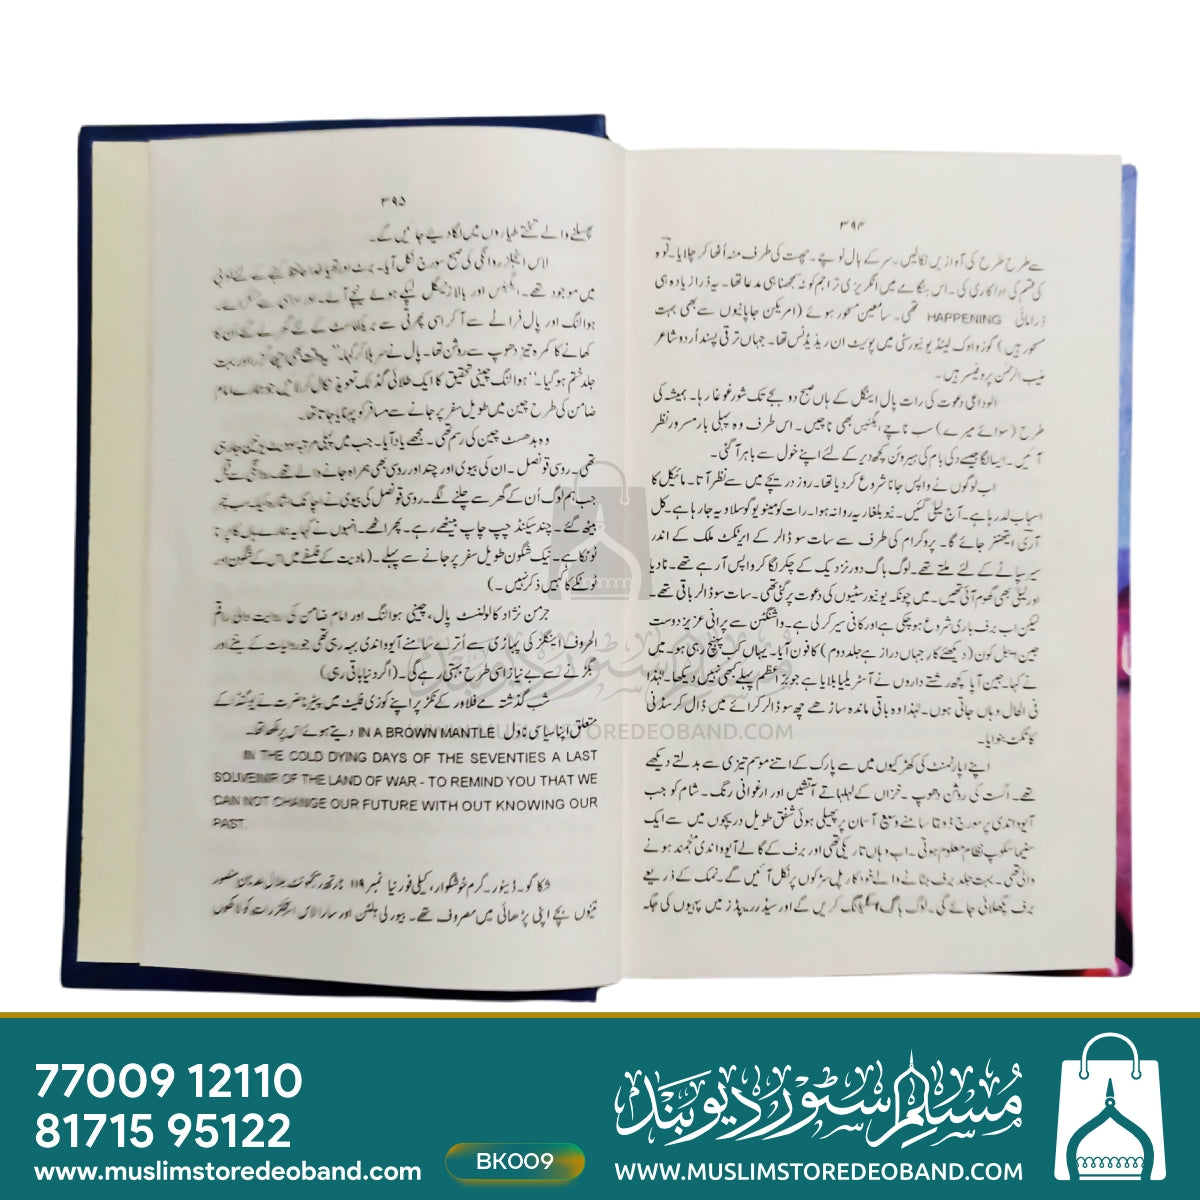 ۳۹۴
سے طرح طرح کی آوازیں نکالیں۔ سر کے بال نوچے۔ چھت کی طرف منہ اُٹھا کر چلایا۔ نوہ
کی قسم کی اداکاری کی۔ اس ہنگامے میں انگریزی تراجم کو نہ سمجھنا ہی مدعا تھا۔ یہ ذرا زیادہ ہی
ڈرامائی HAPPENING تھی۔ سامعین مسحور ہوئے (امریکن جاپانیوں سے بھی بہت
مسحور ہیں) گوزو اوک لینڈ یونیورسٹی میں پویٹ ان ریذیڈنس تھا۔ جہاں ترقی پسند اُردو شاعر
منیب الرحمٰن پروفیسر ہیں۔
الوداعی دعوت کی رات پال اینگل کے ہاں صبح دو بجے تک شور غوغا رہا۔ ہمیشہ کی
طرح (سوائے میرے) سب ناچے ایگنیس بھی ناچیں۔ اس طرف وہ پہلی بار مسرور نظر
آئیں۔ ایسا لگا جیسے دکی بام کی ہیروئن کچھ دیر کے لئے اپنے خول سے باہر آگئی۔
اب لوگوں نے واپس جانا شروع کر دیا تھا۔ روز دریچے میں سے نظر آتا۔ مائیکل کا
اسباب لدر رہا ہے۔ آج لیلیٰ گئیں۔ نیو بلغاریہ روانہ ہوا۔ رات کو مینو یوگوسلاویہ جا رہا ہے۔ کل
آری ایتھنز جائے گا۔ پروگرام کی طرف سے سات سو ڈالر کے ایر ٹکٹ ملک کے اندر
سیر سپاٹے کے لئے ملتے تھے۔ لوگ باگ دور نزدیک کے چکر لگا کر واپس آ رہے تھے۔ نادیا
اور لیلیٰ بھی گھوم آئی تھیں۔ میں چونکہ یونیورسٹیوں کی دعوت پر گئی تھی۔ سات سو ڈالر باقی تھے۔
لیکن اب برف باری شروع ہو چکی ہے اور کافی سیر کر لی ہے۔ واشنگٹن سے پرانی عزیز دوست
جین اسبل کون (دیکھئے کار جہاں دراز ہے جلد دوم) کا فون آیا۔ یہاں کب پہنچ رہی ہو۔ میں
نے کہا۔ جین آپا کچھ رشتے داروں نے آسٹریلیا بلایا ہے جو بر اعظم پہلے کبھی نہیں دیکھا۔ لہٰذا
فی الحال وہاں جاتی ہوں۔ لہٰذا وہ باقی ماندہ ساڑھے چھ سو ڈالر کرائے میں ڈال کر سڈنی
کا ٹکٹ بنوایا۔
اپنے اپارٹمنٹ کی کھڑکیوں میں سے پارک کے اتنے موسم تیزی سے بدلتے دیکھے
تھے۔ اگست کی روشن دھوپ۔ خزاں کے لہلہاتے آتشیں اور ارغوانی رنگ۔ شام کو جب
آیووا ندی پر سورج ڈوبتا سامنے وسیع آسمان پر پھیلی ہوئی شفق طویل دریچوں میں سے ایک
سنیما سکوپ نظام معلوم ہوتی۔ اب وہاں تاریکی تھی اور برف کے گالے آیووا ندی منجمد ہونے
والی تھی۔ بہت جلد برف ہٹانے والے خود کار بل سڑکوں پر نکل آئیں گے۔ نمک کے ذریعے
برف پگھلائی جائے گی۔ لوگ باگ اسکیٹنگ کریں گے اور سیڈر ریپڈز میں پہیوں کی جگہ
۳۹۵
پھسلنے والے تختے طیاروں میں لگا دیئے جائیں گے۔
میری روانگی کی صبح سورج نکل آیا۔
میں موجود تھے۔ ایگنیس اور بالاز لپکے ہوئے نیچے آئے۔
ہوالنگ اور پال فراٹے سے آ کر اسی پھرتی سے بریک فاسٹ کے لئے گھر لے گئے ان کا
کھانے کا کمرہ تیز دھوپ سے روشن تھا۔ پال نے سر ہلا کر کہا۔ ''یہ وقت بھی اچھا گزرا اور بہت
جلد ختم ہو گیا۔'' ہوالنگ چینی تحقیق کا ایک طلائی گڈلک تعویذ نکال کر لائیں جو ہمارے امام
ضامن کی طرح چین میں طویل سفر پر جانے سے مسافر کو پہنایا جاتا تھا۔
وہ بدھسٹ چین کی رسم تھی۔ مجھے یاد آیا۔ جب میں پہلی مرتبہ سوویٹ یونین جا رہی
تھی۔ روسی قونصل۔ ان کی بیوی اور چند اور روسی بھی ہمراہ جانے والے تھے۔ روانگی سے قبل
جب ہم لوگ اُن کے گھر سے چلنے لگے۔ روسی قونصل کی بیوی نے اچانک اشارہ کیا۔ سب پھر
بیٹھ گئے۔ چند سیکنڈ چپ چاپ بیٹھے رہے۔ پھر اٹھے۔ انہوں نے کہا یہ ہمارے ہاں کا پرانا
ٹوٹکا ہے۔ نیک شگون طویل سفر پر جانے سے پہلے۔ (مادیت کے فلسفے میں اس کے شگون اور
ٹوٹکے کا کہیں ذکر نہیں۔)
جرمن نژاد کالونسٹ پال، چینی ہوالنگ اور امام ضامن کی روایت والی راقم
الحروف اینگلز کی پہاڑی سے اُترے سامنے آیووا ندی بہہ رہی تھی جو روایات کے بننے اور
بگڑنے سے بے نیاز اسی طرح بہتی رہے گی۔ (اگر دنیا باقی رہی)
شب گذشتہ مے فلاور کے نکڑ پر اپنے کوزی فلیٹ میں پیٹر نے یوگنڈا کے
متعلق اپنا سیاسی ناول IN A BROWN MANTLE دیتے ہوئے اس پر لکھا تھا۔
IN THE COLD DYING DAYS OF THE SEVENTIES A LAST
SOUVEINIR OF THE LAND OF WAR - TO REMIND YOU THAT WE
CAN NOT CHANGE OUR FUTURE WITH OUT KNOWING OUR
PAST.
شکاگو۔ ڈینور۔ گرم خوشگوار، کیلی فورنیا نمبر ۱۱۹ نارتھ ریکجونٹ جلال الدین منصور
تینوں بچے اپنی پڑھائی میں مصروف تھے۔ بیورلی ہلٹن اور سارا لاس اینجلز رات کو لاکھوں
مسلم سٹور دیوبند
WWW.MUSLIMSTOREDEOBAND.COM
77009 12110
81715 95122
www.muslimstoredeoband.com
BK009
مسلم سٹور دیوبند
WWW.MUSLIMSTOREDEOBAND.COM